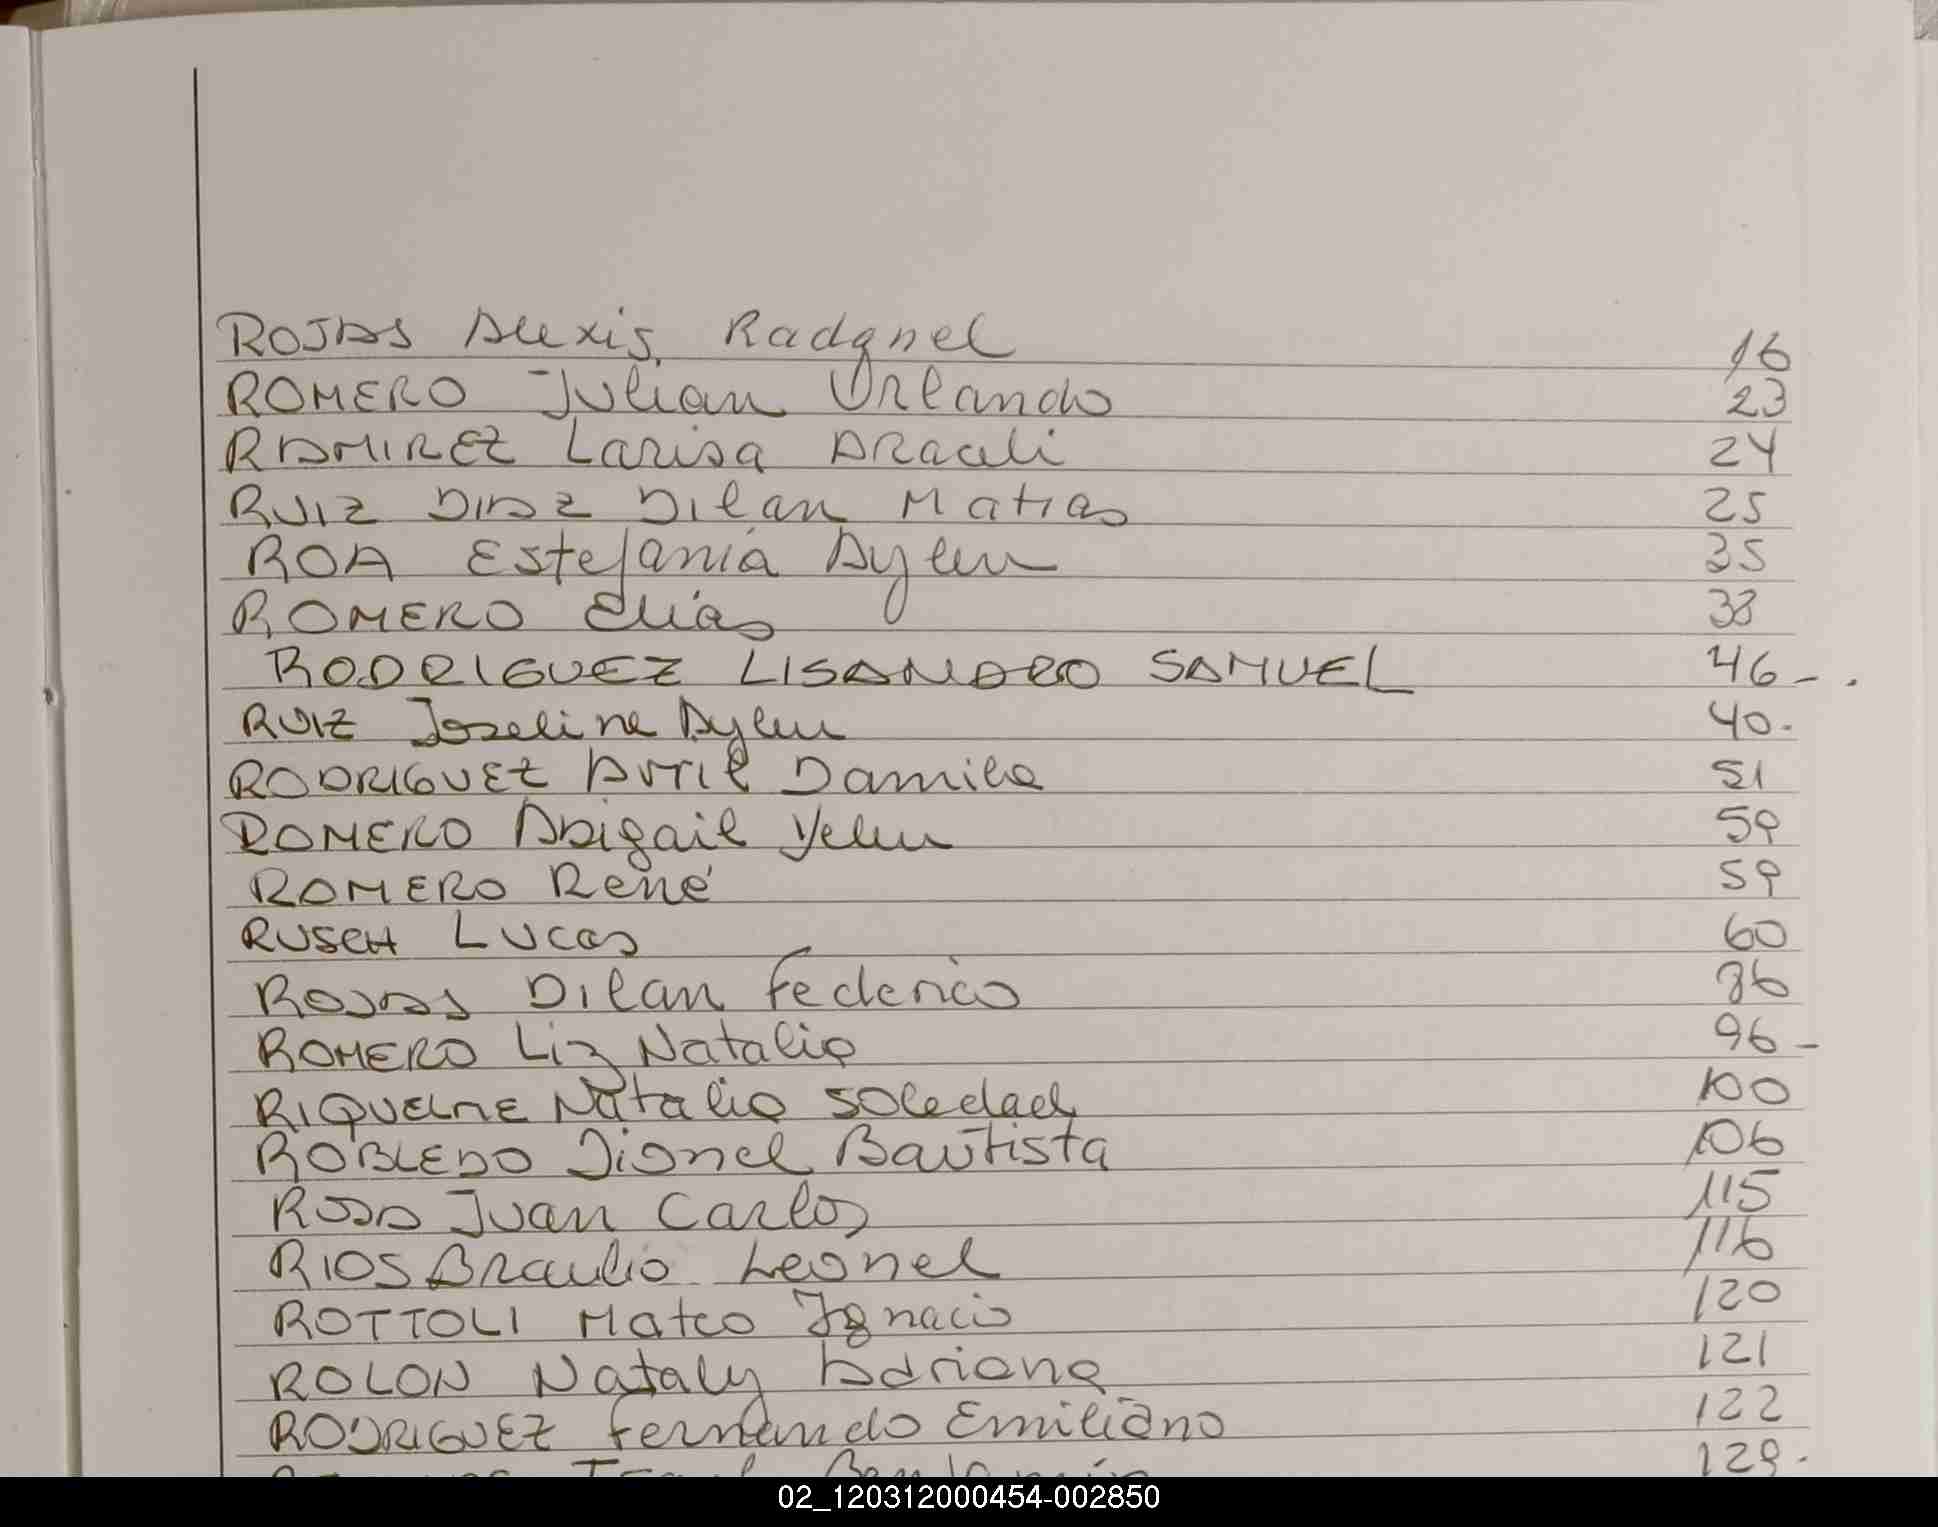 ROJAS Alexis Radanel 16
ROMERO Julian Orlando 23
RAMIREZ Larisa Araceli 24
RUIZ DIAZ Dilan Matias 25
ROA Estefania Aylen 35
ROMERO Elías 38
RODRIGUEZ LISANDRO SAMUEL 46 - .
RUIZ Joseline Aylen 40.
RODRIGUEZ Avril Damila 51
ROMERO Abigail Yelen 59
ROMERO René 59
RUSCH Lucas 60
ROJAS Dilan Federico 86
ROMERO Liz Natalia 96 -
RIQUELME Natalia Soledad 100
ROBLEDO Jionel Bautista 106
ROJAS Juan Carlos 115
RIOS Braulio Leonel 116
ROTTOLI Mateo Ignacio 120
ROLON Nataly Adriana 121
RODRIGUEZ Fernando Emiliano 122
129.
02_120312000454-002850